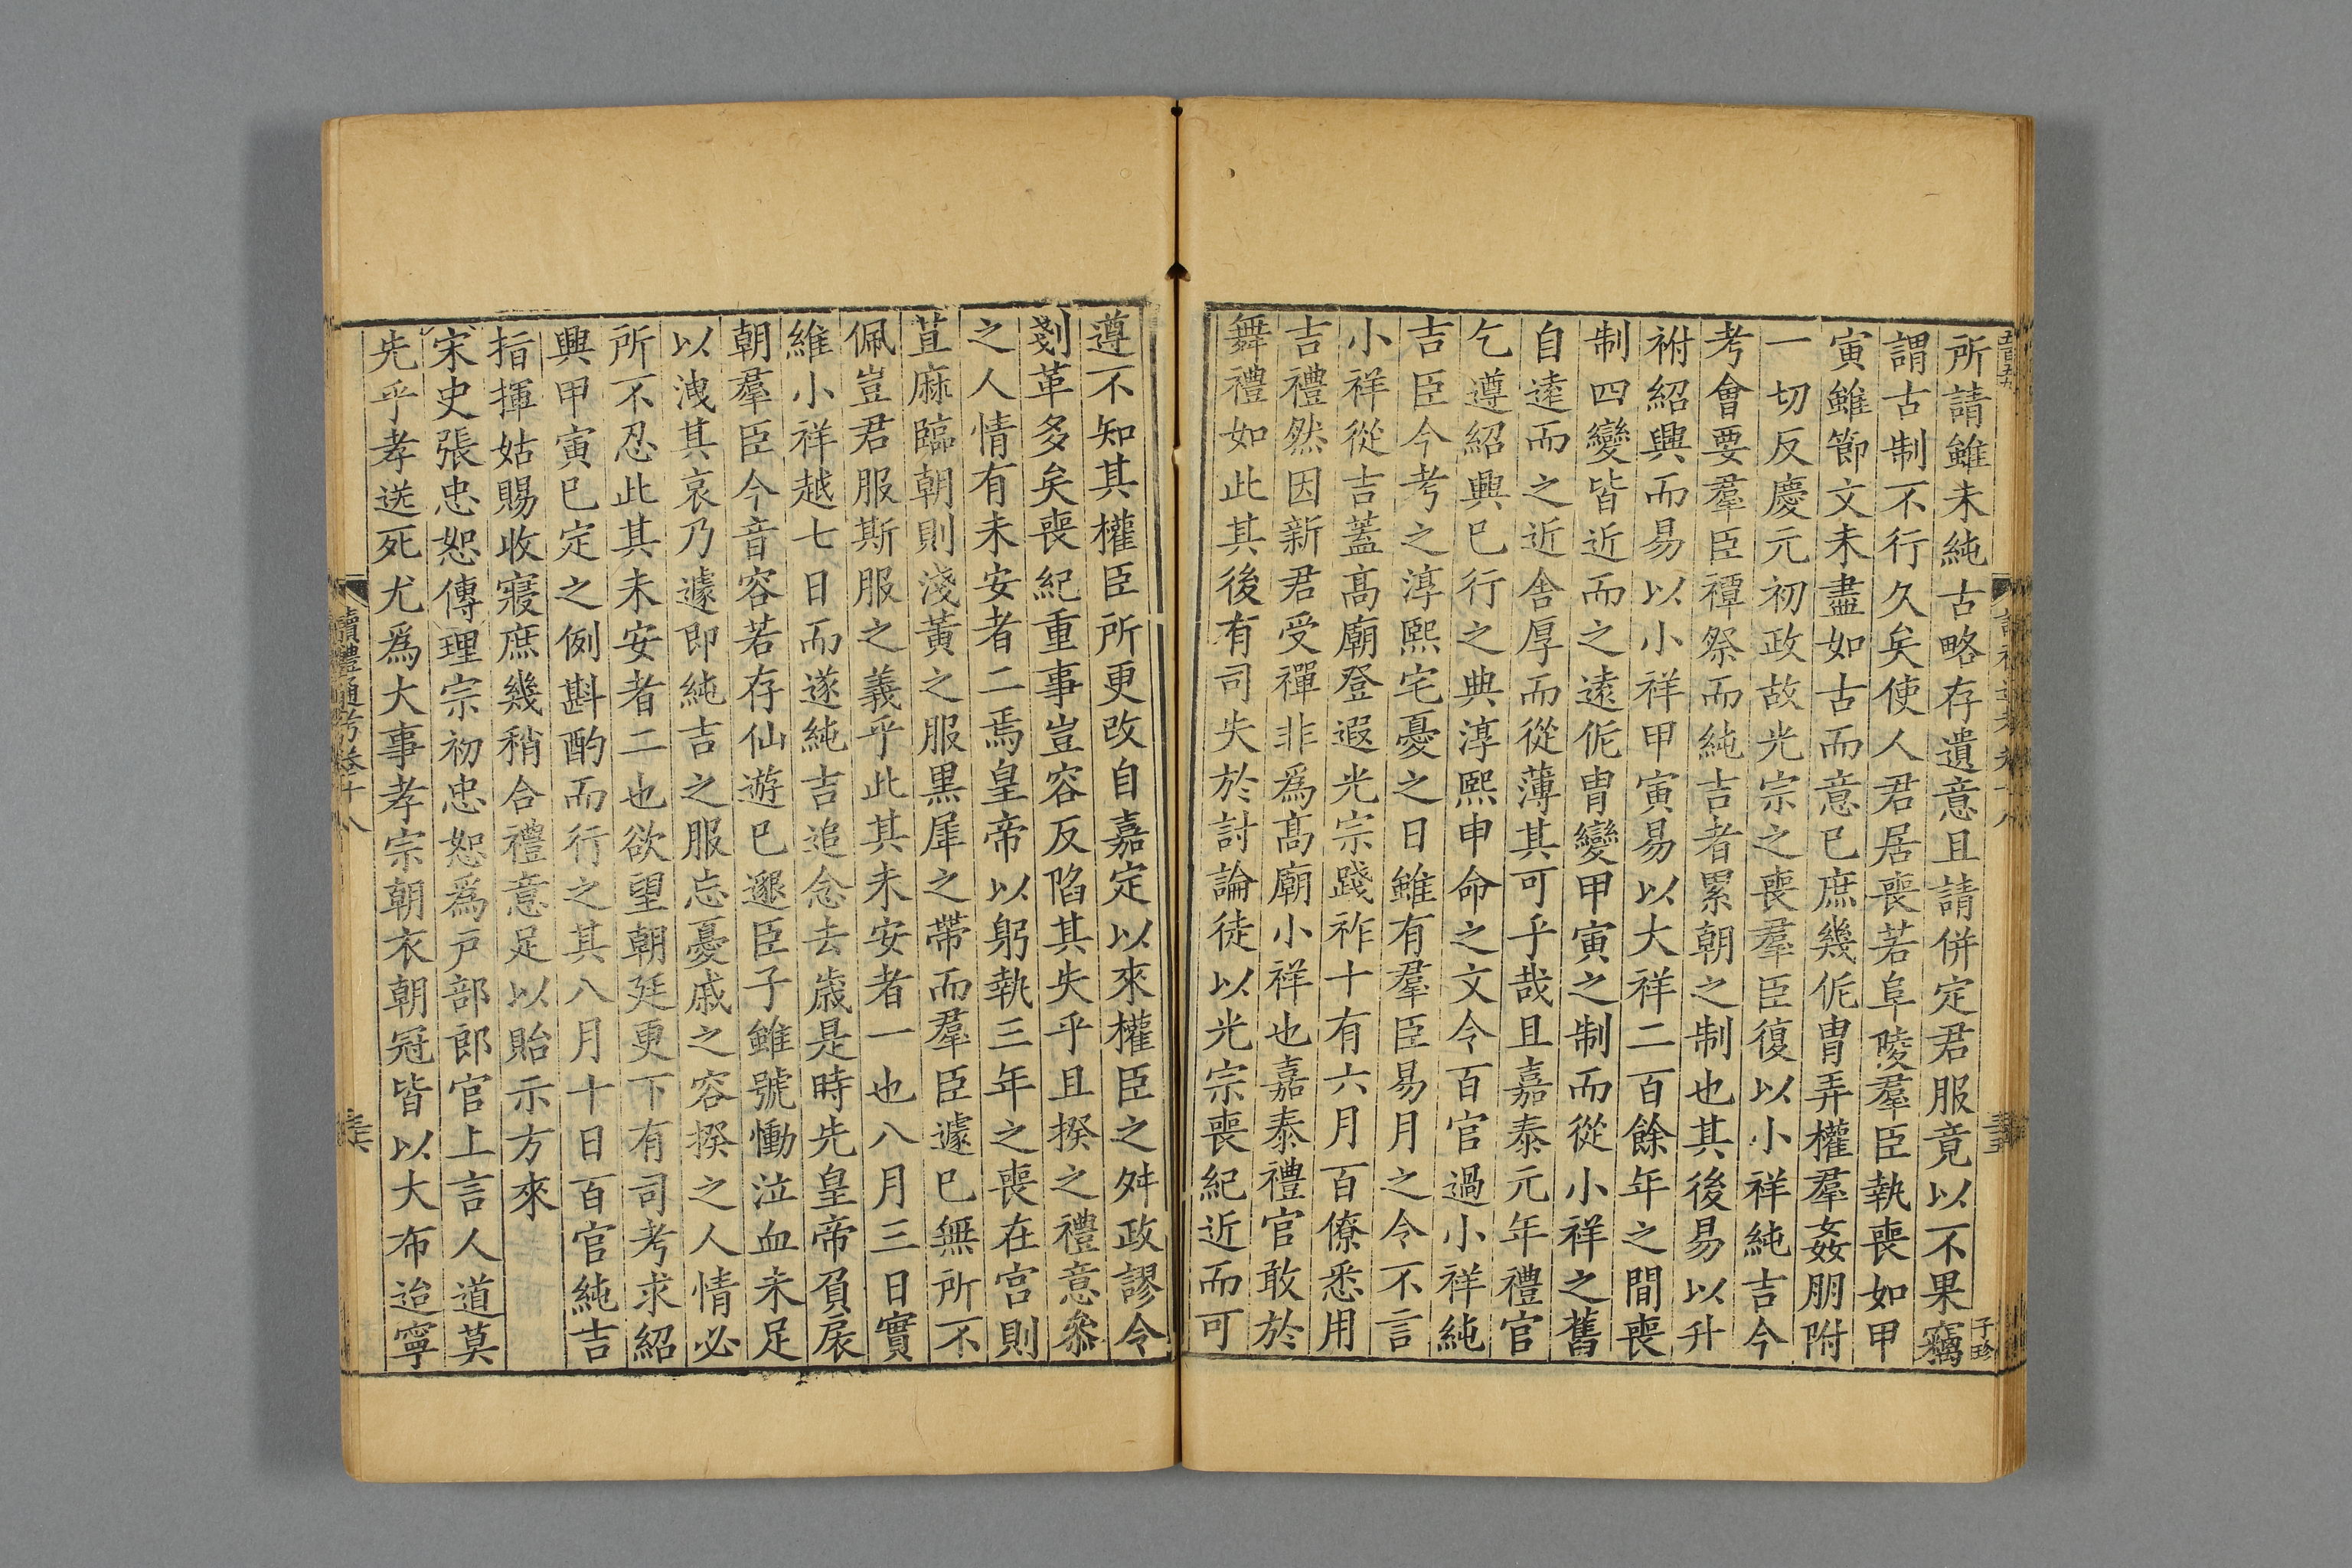 所請雖未純古略存遺意且請併定君服竟以不果竊
謂古制不行久矣使人君居喪若阜陵羣臣執喪如甲
寅雖節文未盡如古而意已庶幾侂胄弄權羣姦朋附
一切反慶元初政故光宗之喪羣臣復以小祥純吉今
考會要羣臣禫祭而純吉者累朝之制也其後易以升
祔紹興而易以小祥甲寅易以大祥二百餘年之間喪
制四變皆近而之遠侂胄變甲寅之制而從小祥之舊
自遠而之近舍厚而從薄其可乎哉且嘉泰元年禮官
乞遵紹興已行之典淳熙申命之文令百官過小祥純
吉臣今考之淳熙宅憂之日雖有羣臣易月之令不言
小祥從吉蓋高廟登遐光宗踐祚十有六月百僚悉用
吉禮然因新君受禪非為高廟小祥也嘉泰禮官敢於
舞禮如此其後有司失於討論徒以光宗喪紀近而可
遵不知其權臣所更改自嘉定以來權臣之舛政謬令
剗革多矣喪紀重事豈容反陷其失乎且揆之禮意叅
之人情有未安者二焉皇帝以躬執三年之喪在宫則
苴麻臨朝則淺黃之服黑犀之帶而羣臣遽已無所不
佩豈君服斯服之義乎此其未安者一也八月三日實
維小祥越七日而遂純吉追念去歲是時先皇帝負扆
朝羣臣今音容若存仙遊已邈臣子雖號慟泣血未足
以洩其哀乃遽即純吉之服忘憂戚之容揆之人情必
所不忍此其未安者二也欲望朝廷更下有司考求紹
興甲寅已定之例斟酌而行之其八月十日百官純吉
指揮姑賜收寢庶幾稍合禮意足以貽示方來
宋史張忠恕傳理宗初忠恕爲戸部郎官上言人道莫
先乎孝送死尤爲大事孝宗朝衣朝冠皆以大布迨寧
讀禮通考卷十八